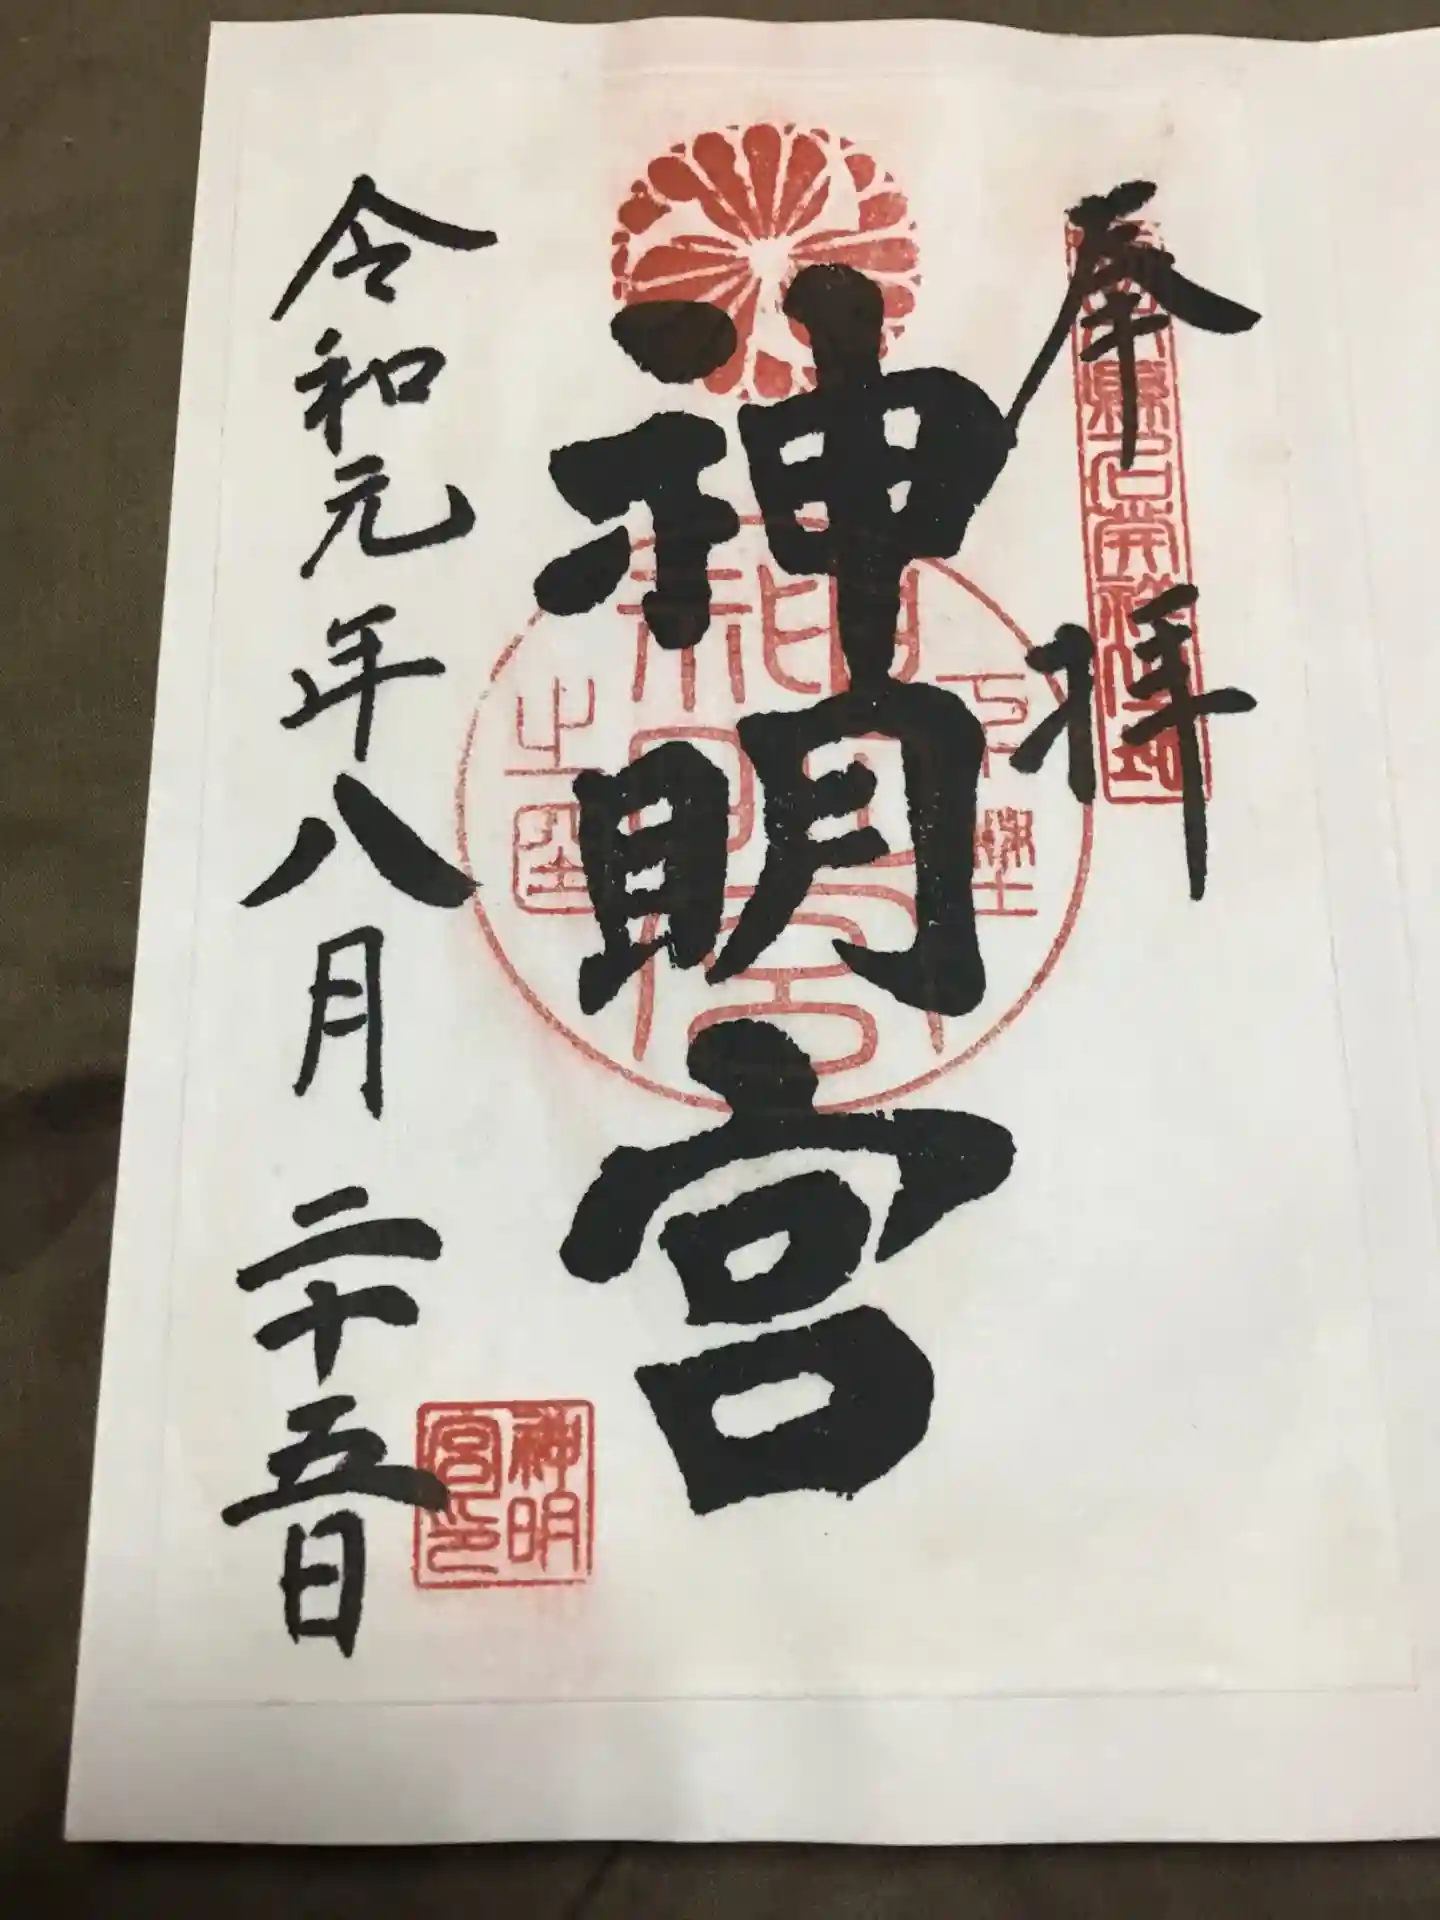 奉拝
神明宮
令和元年八月二十五日
神明
宮印